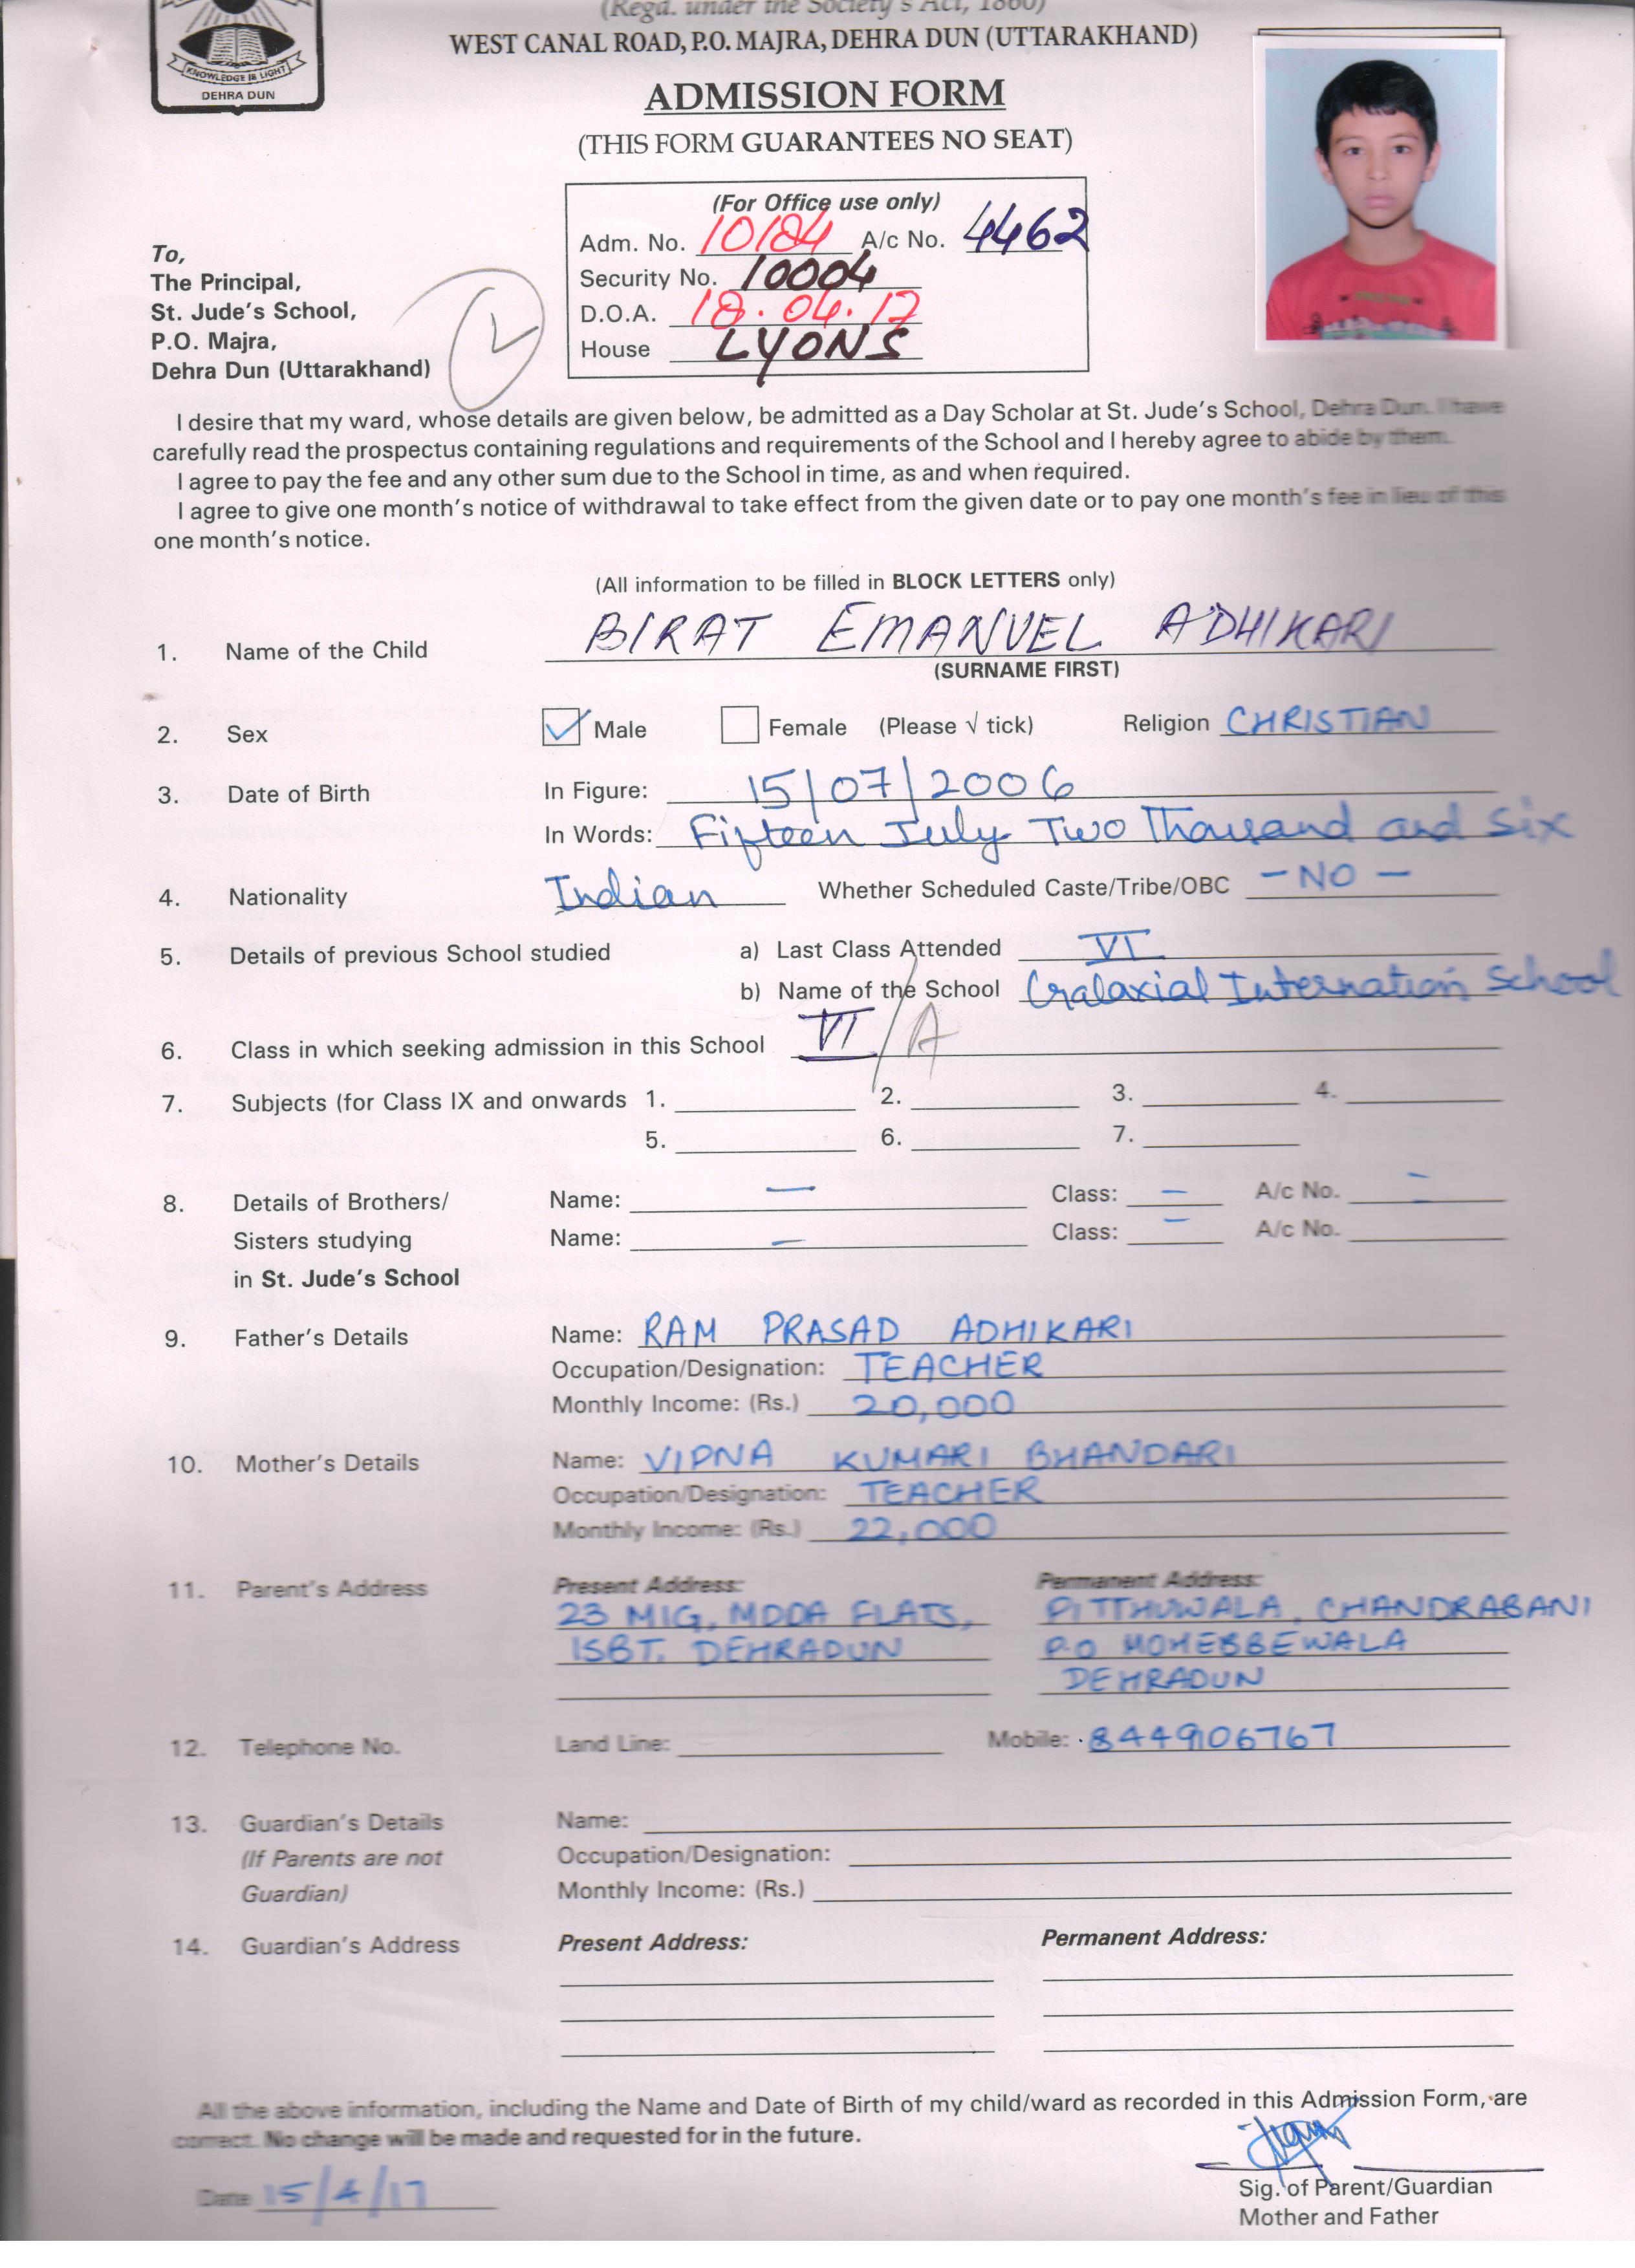 (Regd. under the Society's Act, 1860)
WEST CANAL ROAD, P.O. MAJRA, DEHRA DUN (UTTARAKHAND)
KNOWLEDGE IS LIGHT
DEHRA DUN
ADMISSION FORM
(THIS FORM GUARANTEES NO SEAT)
(For Office use only)
Adm. No. 10184 A/c No. 4462
Security No. 10004
D.O.A. 18.04.17
House LYONS
To,
The Principal,
St. Jude's School,
P.O. Majra,
Dehra Dun (Uttarakhand)
I desire that my ward, whose details are given below, be admitted as a Day Scholar at St. Jude's School, Dehra Dun. I have
carefully read the prospectus containing regulations and requirements of the School and I hereby agree to abide by them.
I agree to pay the fee and any other sum due to the School in time, as and when required.
I agree to give one month's notice of withdrawal to take effect from the given date or to pay one month's fee in lieu of this
one month's notice.
(All information to be filled in BLOCK LETTERS only)
1. Name of the Child BIRAT EMANUEL ADHIKARI
(SURNAME FIRST)
2. Sex ✓ Male Female (Please √ tick) Religion CHRISTIAN
3. Date of Birth In Figure: 15/07/2006
In Words: Fifteen July Two Thousand and Six
4. Nationality Indian Whether Scheduled Caste/Tribe/OBC - NO -
5. Details of previous School studied a) Last Class Attended VI
b) Name of the School Galaxial Internation School
6. Class in which seeking admission in this School VI/A
7. Subjects (for Class IX and onwards 1. 2. 3. 4.
5. 6. 7.
8. Details of Brothers/ Name: — Class: — A/c No. —
Sisters studying Name: — Class: — A/c No.
in St. Jude's School
9. Father's Details Name: RAM PRASAD ADHIKARI
Occupation/Designation: TEACHER
Monthly Income: (Rs.) 20,000
10. Mother's Details Name: VIPNA KUMARI BHANDARI
Occupation/Designation: TEACHER
Monthly Income: (Rs.) 22,000
11. Parent's Address Present Address: Permanent Address:
23 MIG, MDDA FLATS, PITTHUWALA, CHANDRABANI
ISBT. DEHRADUN P.O MOHEBBEWALA
DEHRADUN
12. Telephone No. Land Line: Mobile: 8449106767
13. Guardian's Details Name:
(If Parents are not Occupation/Designation:
Guardian) Monthly Income: (Rs.)
14. Guardian's Address Present Address: Permanent Address:
All the above information, including the Name and Date of Birth of my child/ward as recorded in this Admission Form, are
correct. No change will be made and requested for in the future.
Date 15/4/17
Sig. of Parent/Guardian
Mother and Father